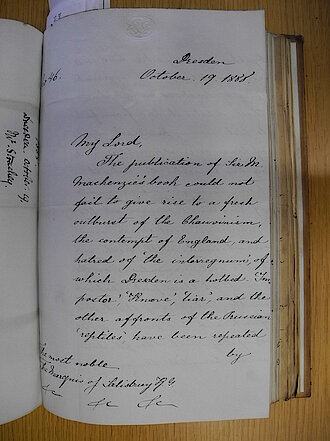 Dresden
October 19 1888
46.
My Lord,
The publication of Sir M.
Mackenzie's book could not
fail to give rise to a fresh
outburst of the Chauvinism,
the contempt of England, and
hatred of 'the interregnum', of
which Dresden is a hotbed. 'Im-
postor', 'Knave', 'liar', and the
other affronts of the Prussian
'reptiles' have been repeated
by
The most noble
The Marquis of Salisbury K.G
&c &c &c
Dresden
Mr Strachey